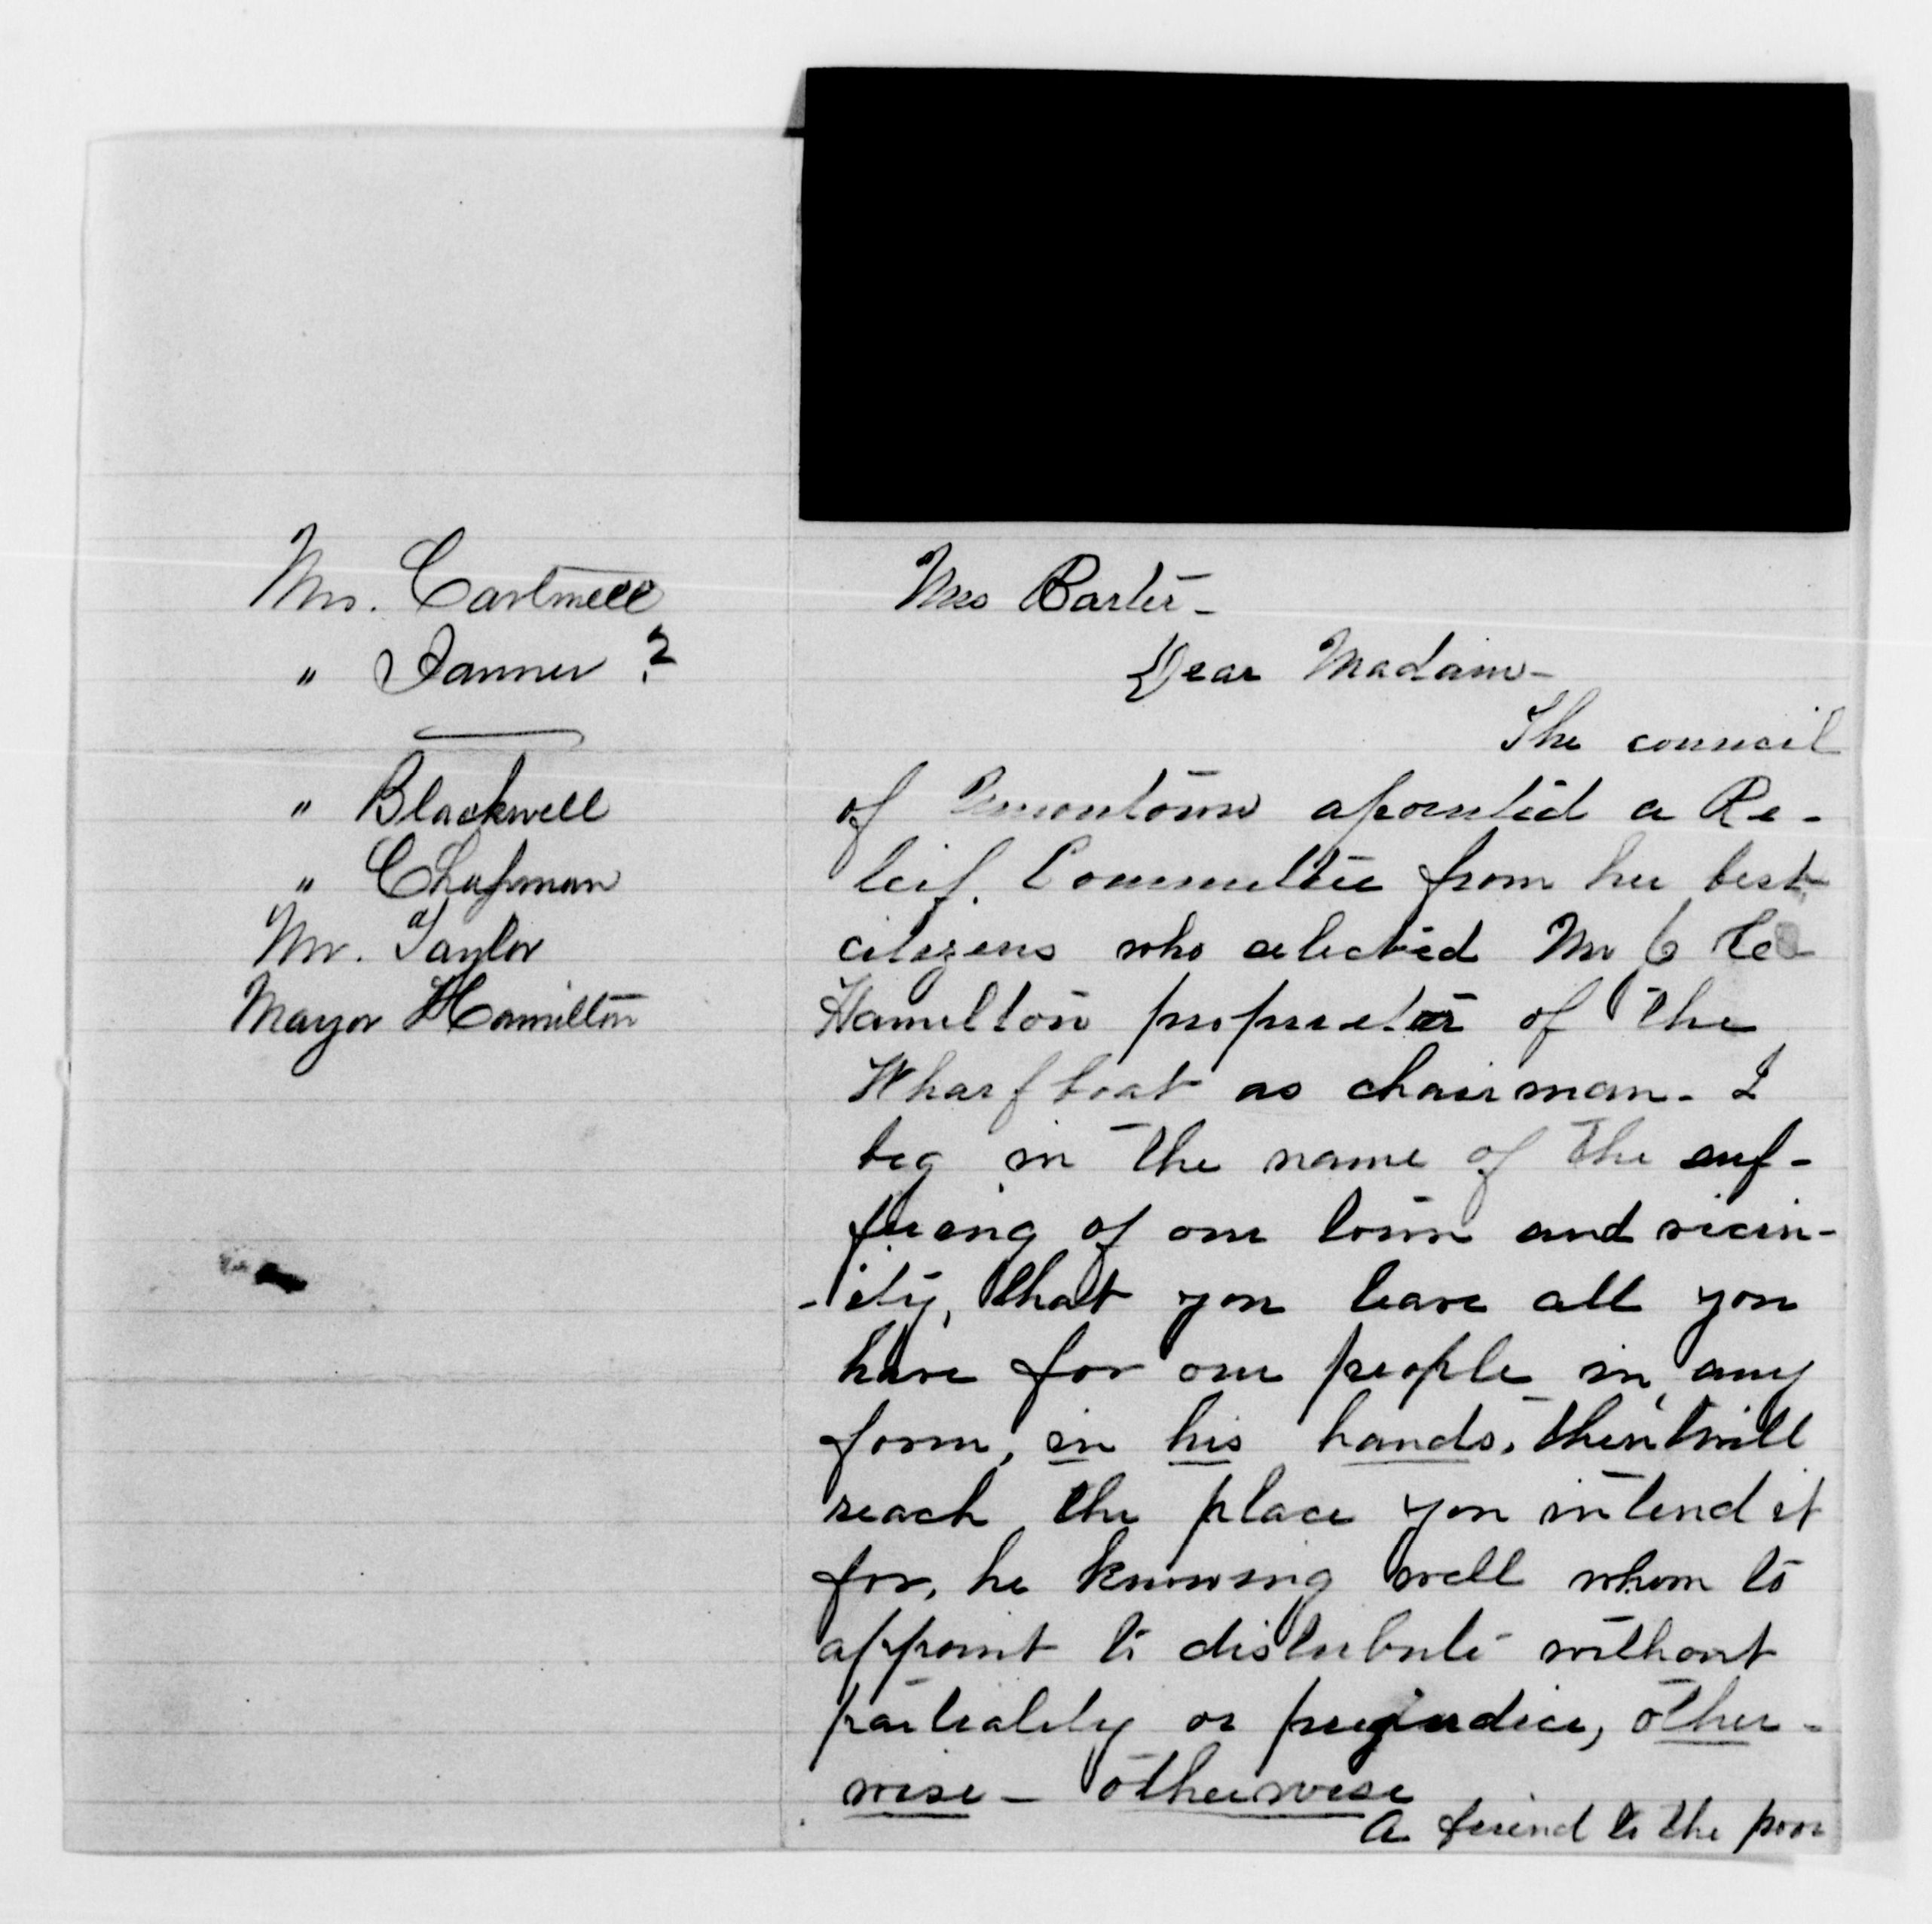 Mrs. Cartmell
" Tanner ?
" Blackwell
" Chapman
Mr. Taylor
Mayor Hamilton
Mrs Barter-
Dear Madam-
The council
of Uniontown apointed a Re-
leif. Committee from her best
citizens who selected Mr C
Hamilton proprietor of the
Wharf boat as chairman. I
beg in the name of the suf-
fering of our town and vicin-
-ity, that you leave all you
have for our people in any
form, in his hands, then twill
reach the place you intend it
for, he knowing well whom to
appoint to distribute without
partiality or prejudice, other-
wise - otherwise
A freind to the poor